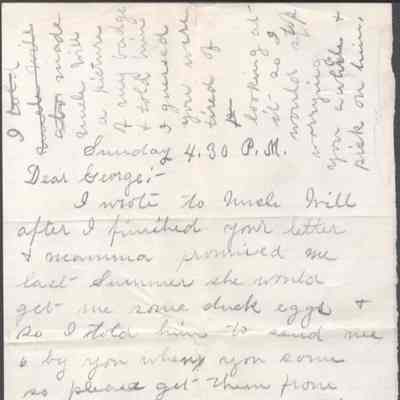 Sunday 4.30 P.M.
Dear George;-
I wrote to Uncle Will
after I finished your letter
& mamma promised me
last Summer she would
get me some duck eggs &
so I told him to send me
6 by you when you come
so please get them from
I told
Uncle Will
also made
Uncle Will
a picture
of my badge
& told him
I guessed
you were
tired of
looking at
it so I
would stop
worrying
you a while &
pick on him.